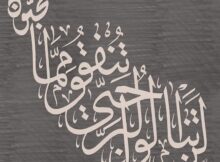 لن تنالوا البر حتى تنفقوا مما تحبون